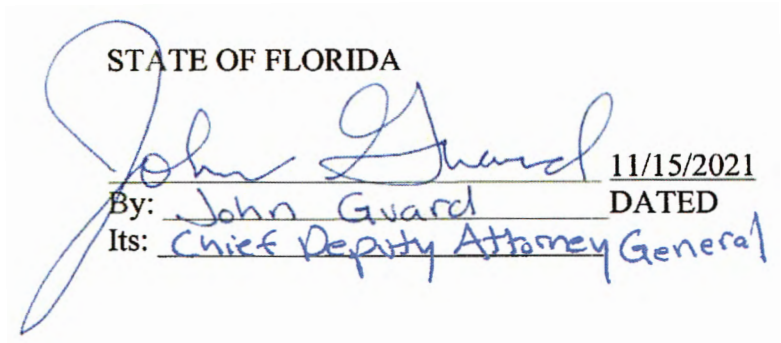 STATE OF FLORIDA
John Guard 11/15/2021
By: John Guard DATED
Its: Chief Deputy Attorney General